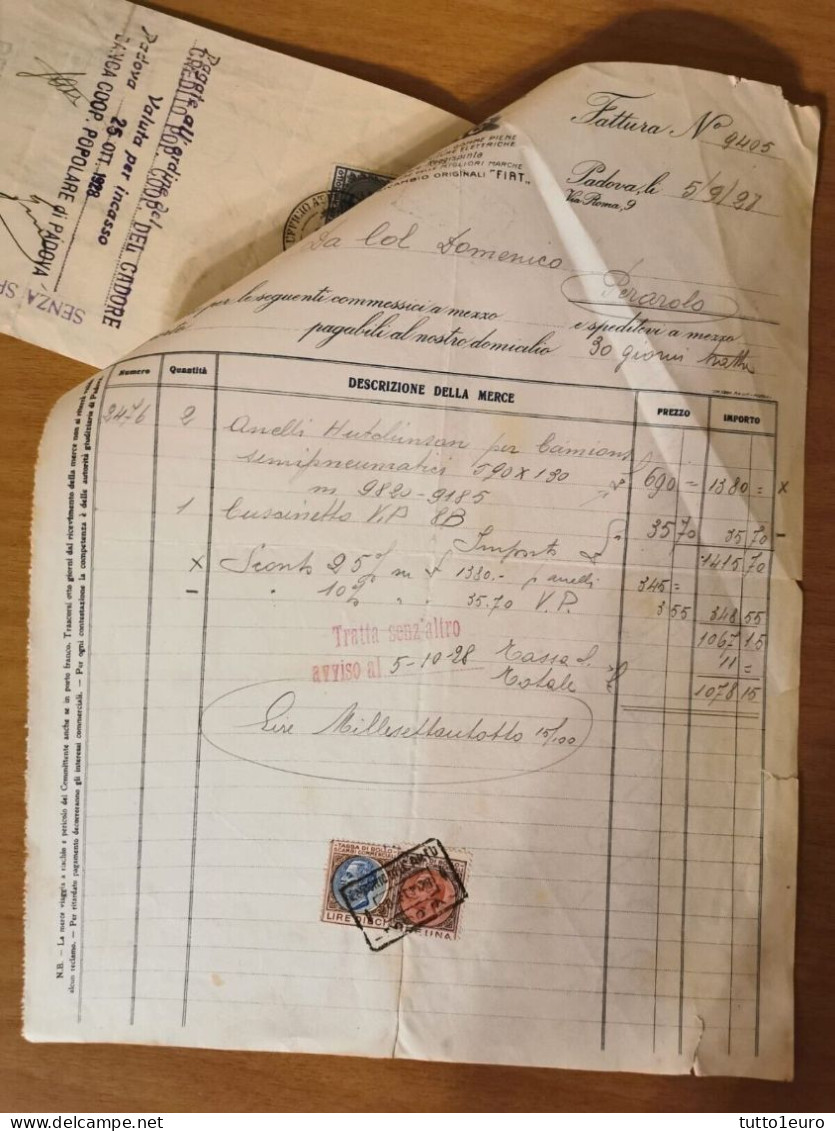 Pagate all'ordine del
CREDITO POP. COOP. DEL CADORE
Valuta per incasso
Padova 25 OTT. 1928
BANCA COOP. POPOLARE di PADOVA
SENZA SP
UFFICIO A
GOMME PIENE
ELETTRICHE
MIGLIORI MARCHE
ORIGINALI "FIAT"
Fattura No 9405
Padova, li 5/9/28
Via Roma, 9
Da Col Domenico
Perarolo
per le seguenti commessici a mezzo
e speditevi a mezzo
pagabili al nostro domicilio 30 giorni tratta
Numero Quantità DESCRIZIONE DELLA MERCE PREZZO IMPORTO
2476 2 Anelli Hutchinson per Camions
semipneumatici 590 x 130 690 = 1380 = x
m 9820-9185
1 Cuscinetto V.P. 8B 35 70 35 70 -
Importo 1415 70
x Sconto 25% 1380.- p anelli 345 =
- " 10% " " 35.70 V.P. 3 55 348 55
1067 15
Tratta senz'altro
avviso al 5-10-28 Tassa 11 =
Totale 1078 15
Lire Millesettantotto 15/100
TASSA DI BOLLO
SCAMBI COMMERCIALI
LIRE DIECI
N.B. - La merce viaggia a rischio e pericolo del Committente anche se in porto franco. Trascorsi otto giorni dal ricevimento della merce non si riterrà
alcun reclamo. - Per ritardato pagamento decorreranno gli interessi commerciali. - Per ogni contestazione la competenza è delle autorità giudiziarie di Padova.
tutto1euro